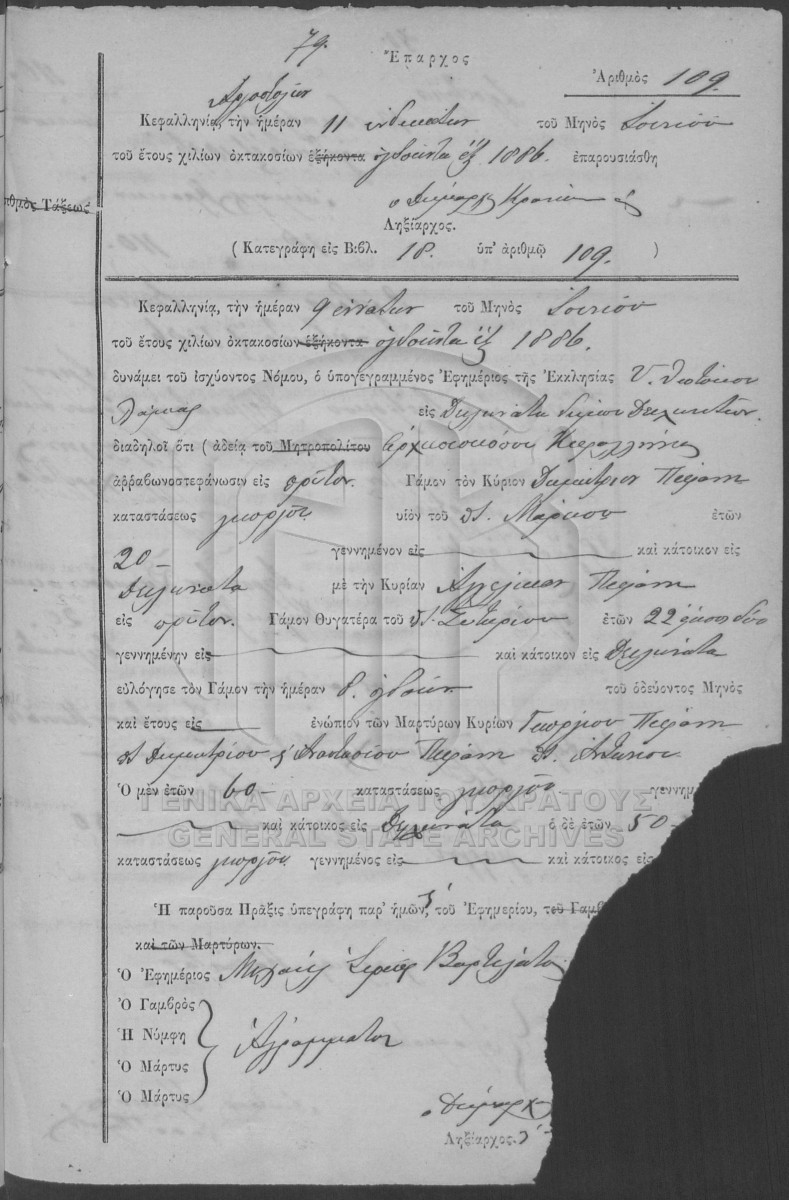 79.
Ἔπαρχος
Ἀριθμὸς 109.
Ἀργοστόλιον
Κεφαλληνία, τὴν ἡμέραν 11 ἑνδεκάτην τοῦ Μηνὸς Ἰουνίου
τοῦ ἔτους χιλίων ὀκτακοσίων ἑξήκοντα ὀγδοήντα ἕξ 1886. ἐπαρουσιάσθη
ὁ Δήμαρχ Κρανίων
ιθμὸς Τάξεως
Ληξίαρχος.
( Κατεγράφη εἰς Βιβλ. 18. ὑπ' ἀριθμῷ 109. )
Κεφαλληνίᾳ, τὴν ἡμέραν 9 ἐννάτην τοῦ Μηνὸς Ἰουνίου
τοῦ ἔτους χιλίων ὀκτακοσίων ἑξήκοντα ὀγδοήντα ἕξ 1886.
δυνάμει τοῦ ἰσχύοντος Νόμου, ὁ ὑπογεγραμμένος Ἐφημέριος τῆς Ἐκκλησίας Υ. Θεοτόκου
Λάμιας εἰς Διλινάτα Δήμου
διαδηλοῖ ὅτι ( ἀδείᾳ τοῦ Μητροπολίτου Ἀρχιεπισκόπου Κεφαλληνίας
ἀῤῥαβωνοστεφάνωσιν εἰς πρῶτον Γάμον τὸν Κύριον Δημήτριον Πεφάνη
καταστάσεως γεωργὸς υἱὸν τοῦ Μάρκου ἐτῶν
20 γεννημένον εἰς καὶ κάτοικον εἰς
Διλινάτα μὲ τὴν Κυρίαν Ἀγγελικὴν Πεφάνη
εἰς πρῶτον. Γάμον Θυγατέρα τοῦ Σωτηρίου ἐτῶν 22 εἴκοσι δύο
γεννημένην εἰς καὶ κάτοικον εἰς Διλινάτα
εὐλόγησε τὸν Γάμον τὴν ἡμέραν 8. ὀγδόην τοῦ ὁδεύοντος Μηνὸς
καὶ ἔτους εἰς ἐνώπιον τῶν Μαρτύρων Κυρίων Γεωργίου Πεφάνη
Δημητρίου & Ἀναστασίου Πεφάνη Ἀντωνίου
Ὁ μὲν ἐτῶν 60 καταστάσεως γεωργὸς γεννημ
καὶ κάτοικος εἰς Διλινάτα ὁ δὲ ἐτῶν 50
καταστάσεως γεωργὸς γεννημένος εἰς καὶ κάτοικος εἰς
Ἡ παροῦσα Πρᾶξις ὑπεγράφη παρ' ἡμῶν, τοῦ Ἐφημερίου, τοῦ Γαμβ
καὶ τῶν Μαρτύρων.
Ὁ Ἐφημέριος Μιχαὴλ Ἱερεὺς Βαρτελάτος
Ὁ Γαμβρὸς
Ἡ Νύμφη
Ἀγράμματοι
Ὁ Μάρτυς
Ὁ Μάρτυς
ὁ Δήμαρχ
Ληξίαρχος.
ΓΕΝΙΚΑ ΑΡΧΕΙΑ ΤΟΥ ΚΡΑΤΟΥΣ
GENERAL STATE ARCHIVES